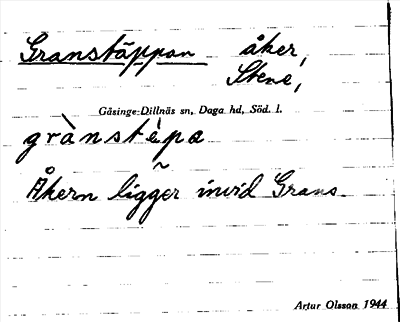 Granstäppan åker,
Stene,
Gåsinge-Dillnäs sn, Daga hd, Söd. l.
grànstèpa
Åkern ligger invid Grans-
Artur Olsson 1944